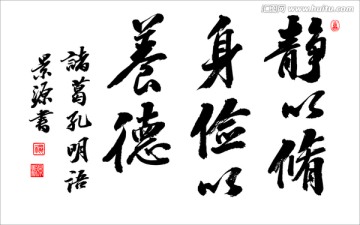 静以脩
身儉以
養德
諸葛孔明語
景源書
www.huitu.com